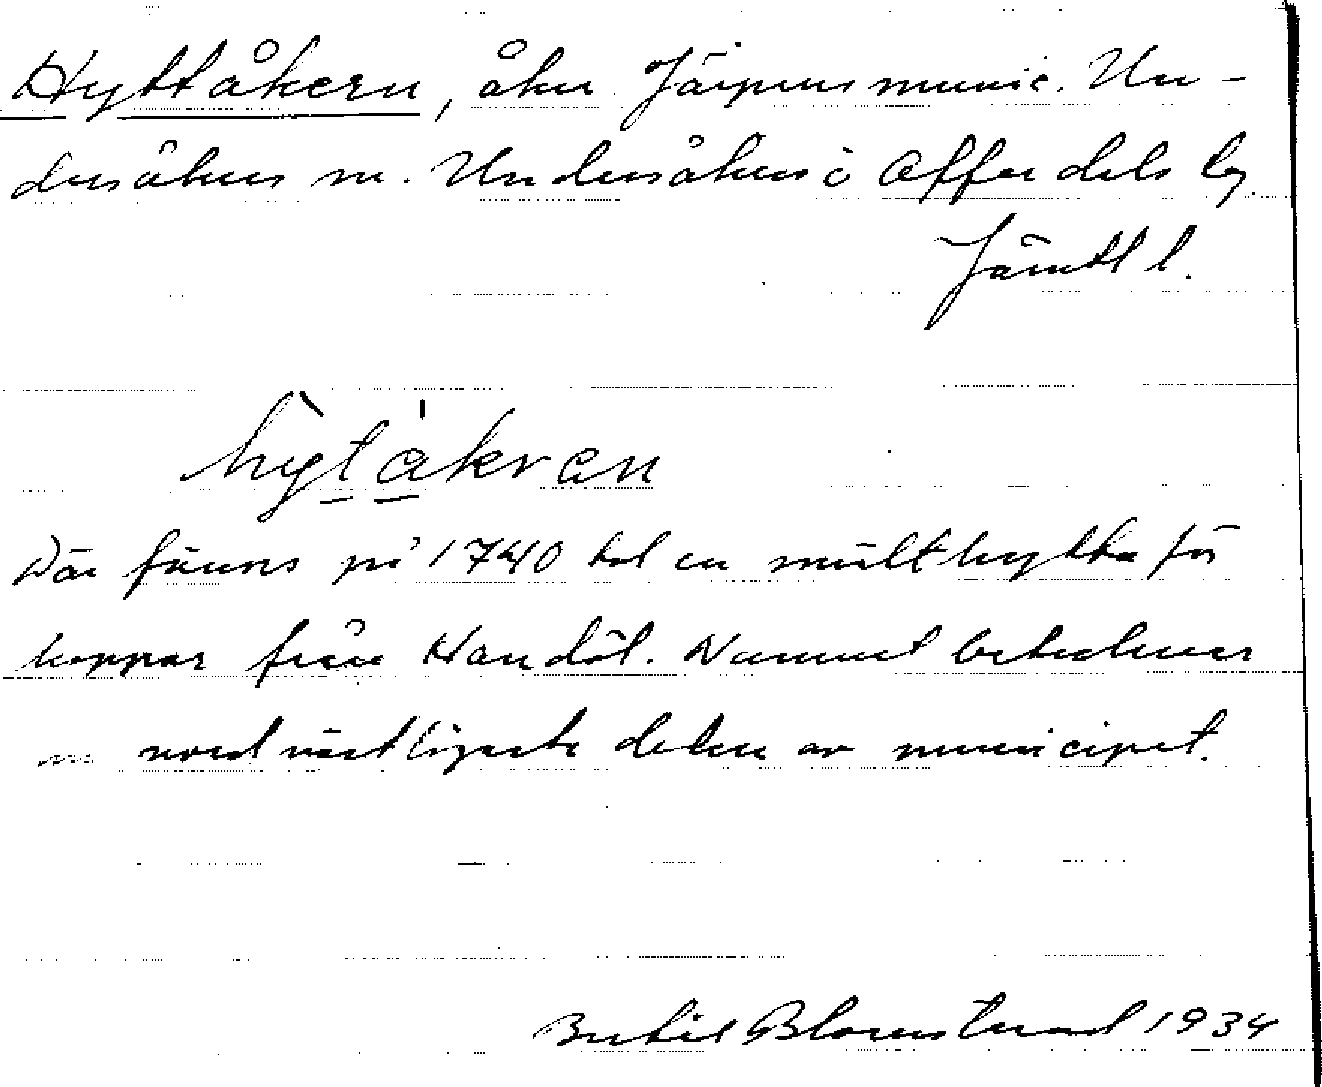 Hyttåkern, åker Järpens munic. Un-
dersåkers sn. Undersåkers o Offerdals tg
Jämtl l.
hỳtákran
Där fanns på 1740 tal en smälthytta för
koppar från Handöl. Namnet betecknar
nordvästligaste delen av municipet.
Bertil Blomstrand 1934